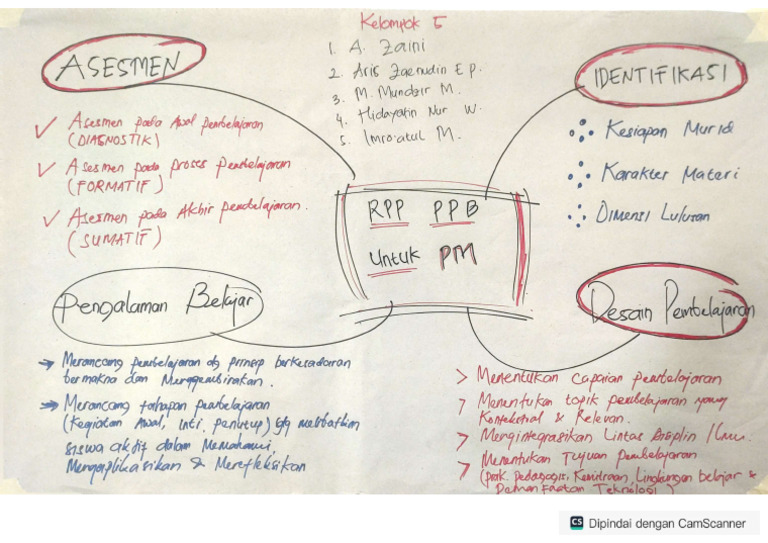 Kelompok 5
1. A. Zaini
2. Aris Zaenudin E P.
3. M. Mundzir M.
4. Hidayatin Nur W.
5. Imro'atul M.
ASESMEN
✓ Asesmen pada Awal pembelajaran
(DIAGNOSTIK)
✓ Asesmen pada proses Pembelajaran
(FORMATIF)
✓ Asesmen pada Akhir pembelajaran.
(SUMATIF)
IDENTIFIKASI
Kesiapan Murid
Karakter Materi
Dimensi Lulusan
RPP PPB
Untuk PM
Pengalaman Belajar
→ Merancang pembelajaran dg prinsip berkesadaran
bermakna dan Menggembirakan.
→ Merancang tahapan pembelajaran
(Kegiatan Awal, Inti, penutup) dg melibatkan
siswa aktif dalam Memahami,
Mengaplikasikan & Merefleksikan
Desain Pembelajaran
> Menentukan Capaian pembelajaran
> Menentukan topik pembelajaran yang
Kontekstual & Relevan.
> Mengintegrasikan Lintas Disiplin Ilmu.
> Menentukan Tujuan Pembelajaran
(prak. Pedagogis, Kemitraan, Lingkungan belajar &
Teknologi)
CS Dipindai dengan CamScanner